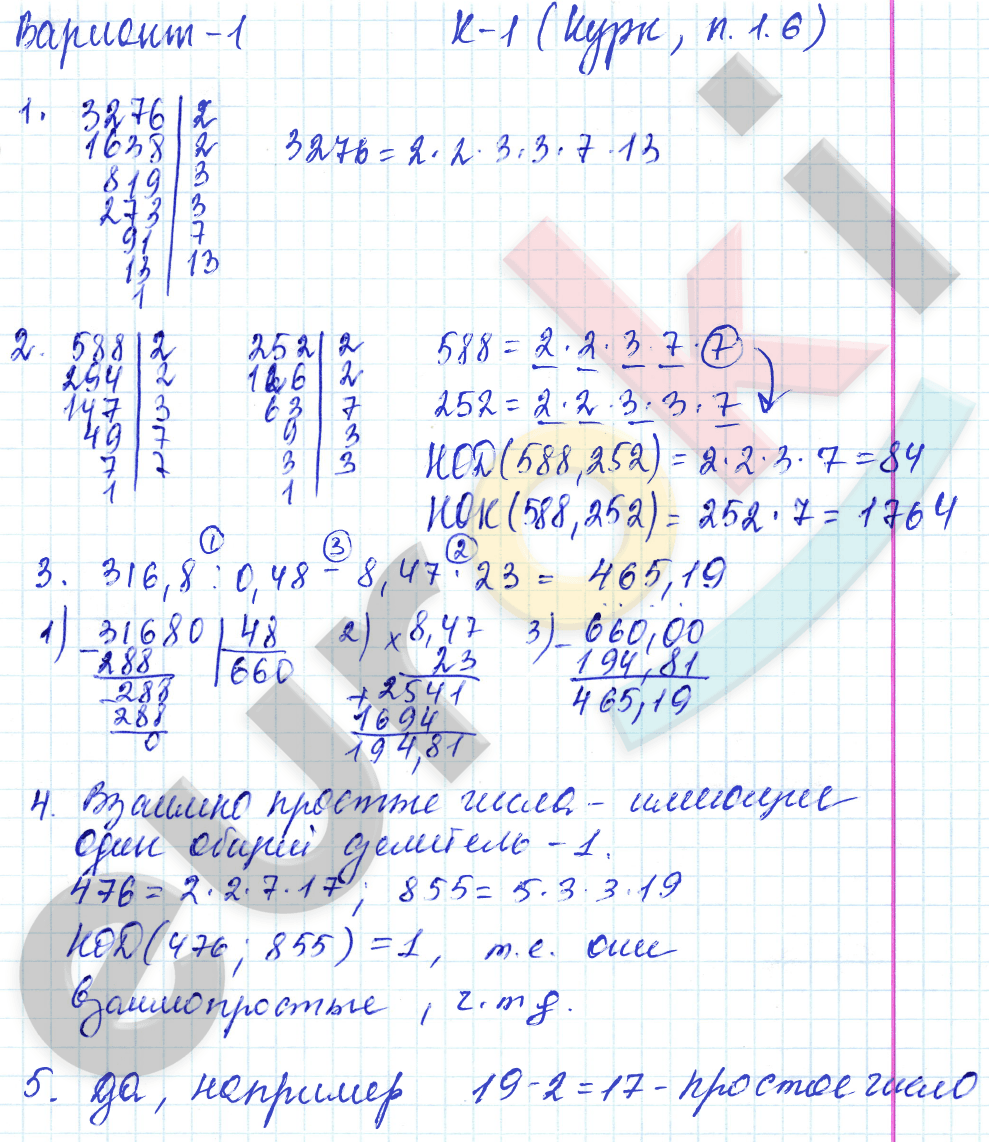 Вариант-1 К-1 (Нурк, п. 1.6)
1. 3276 | 2
1638 | 2
819 | 3
273 | 3
91 | 7
13 | 13
1
3276 = 2·2·3·3·7·13
2. 588 | 2
294 | 2
147 | 3
49 | 7
7 | 7
1
252 | 2
126 | 2
63 | 7
9 | 3
3 | 3
1
588 = 2·2·3·7·7
252 = 2·2·3·3·7
НОД(588,252) = 2·2·3·7 = 84
НОК(588,252) = 252·7 = 1764
1 3 2
3. 316,8 : 0,48 - 8,47 · 23 = 465,19
1) 31680 | 48
288 | 660
288
288
0
2) × 8,47
23
+ 2541
1694
194,81
3) - 660,00
194,81
465,19
4. Взаимно простые числа - имеющие
один общий делитель - 1.
476 = 2·2·7·17; 855 = 5·3·3·19
НОД(476; 855) = 1, т.е. они
взаимопростые, ч.тд.
5. Да, например 19-2=17 - простое число
euroki